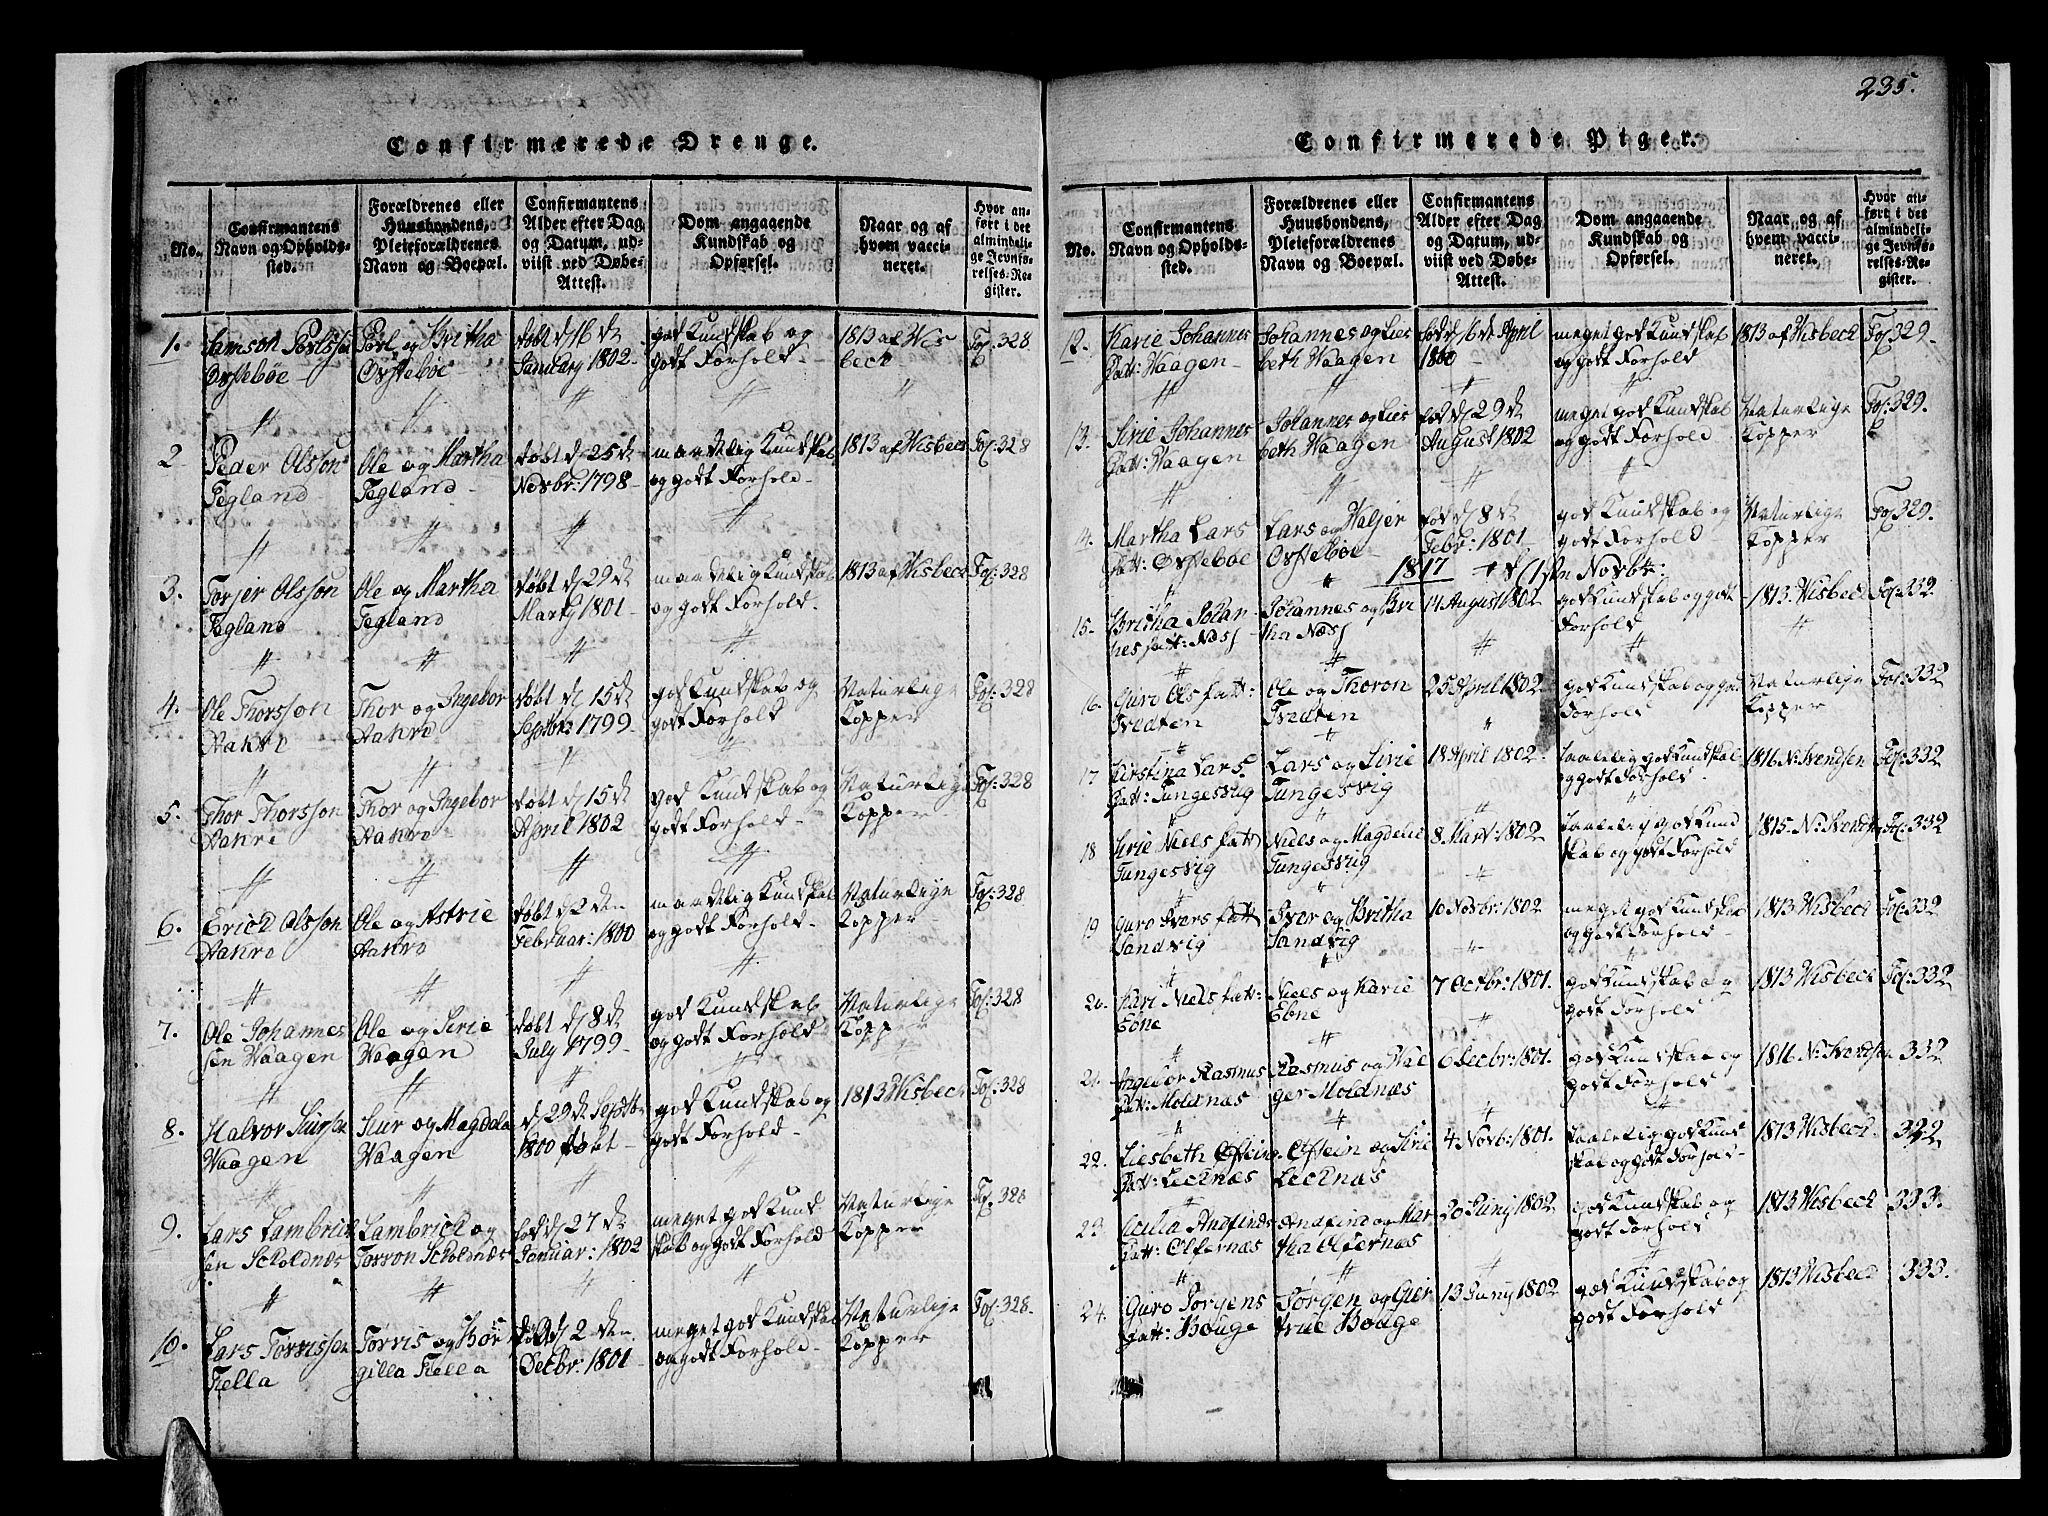 235.
Confirmerede Drenge.
No.
Confirmantens
Navn og Opholds-
sted.
Forældrenes eller
Huusbondens,
Pleieforældrenes
Navn og Boepæl.
Confirmantens
Alder efter Dag
og Datum, ud-
viist ved Døbe-
Attest.
Dom angaaende
Kundskab og
Opførsel.
Naar og af
hvem vacci-
neret.
Hvor an-
ført i det
almindeli-
ge Jevnfø-
relses-Re-
gister.
1.
Samson
Povl og Britha
døbt d 16 de
January 1802
god Kundskab og
godt Forhold
1813 af Wis
beck
Fol: 328
2
Peder Olsson
Tegland
Ole og Martha
Tegland
døbt d 25 de
Novbr: 1798
maadelig Kundskab
og godt Forhold
1813 af Wisbeck
Fol: 328
3.
Torjer Olsson
Tegland
Ole og Martha
Tegland
døbt d 29 de
Marty 1801
maadelig Kundskab
og godt Forhold
1813 af Wisbeck
Fol: 328
4.
Ole Thorsson
Aakre
Thor og Ingebor
Aakre
døbt d 15 de
Septbr: 1799
god Kundskab og
godt Forhold
Naturlige
Kopper
Fol: 328
5.
Thor Thorsson
Aakre
Thor og Ingebor
Aakre
døbt d 15 de
April 1802
god Kundskab og
godt Forhold
Naturlige
Kopper
Fol: 328
6.
Erich Olsson
Aakre
Ole og Astrie
Aakre
døbt d 2 den
Februar: 1800
maadelig Kundskab
og godt Forhold
Naturlige
Kopper
Fol: 328
7.
Ole Johannes
sen Waagen
Ole og Sirie
Waagen
døbt d 8 de
July 1799
god Kundskab
og godt Forhold
Naturlige
Kopper
Fol: 328
8.
Halvor Siursen
Waagen
Siur og Magdela
Waagen
d 29 de Septbr
1800 døbt
god Kundskab og
godt Forhold
1813 Wisbeck
Fol: 328
9.
Lars Lambrick
sen Scholdnæs
Lambrick og
Scholdnæs
født d 27 de
Januar: 1802
meget god Kund
skab og godt Forhold
Naturlige
Kopper
Fol: 328
10.
Lars Torvissen
Fiella
Torvis og Bor
gilla Fiella
d 2 den
Decbr: 1801
meget god Kundskab
og godt Forhold
Naturlige
Kopper
Fol: 328.
Confirmerede Piger.
No.
Confirmantens
Navn og Opholds-
sted.
Forældrenes eller
Huusbondens,
Pleieforældrenes
Navn og Boepæl.
Confirmantens
Alder efter Dag
og Datum, ud-
viist ved Døbe-
Attest.
Dom angaaende
Kundskab og
Opførsel.
Naar og af
hvem vacci-
neret.
Hvor an-
ført i det
almindeli-
ge Jevnfø-
relses-Re-
gister.
12.
Karie Johannes
datt: Waagen
Johannes og Lies
beth Waagen
født d 16 de April
1800
meget god Kundskab
og godt Forhold
1813 af Wisbeck
Fol 329.
13.
Sirie Johannes
datt: Waagen
Johannes og Lies
beth Waagen
født d 29 de
August 1802
meget god Kundskab
og godt Forhold
Naturlige
Kopper
Fol: 329.
14.
Martha Lars
datt:
Lars og
født d 8 de
Febr: 1801
god Kundskab og
godt Forhold
Naturlige
Kopper
Fol 329.
1817
Novbr:
15.
Britha Johan
nes datt: Næss
Johannes og Bri
tha Næss
14 August 1802
god Kundskab og godt
Forhold
1813. Wisbeck
Fol: 332.
16.
Guro Ols datt:
Tvedten
Ole og Thoron
Tvedten
25 April 1802
god Kundskab og god
Forhold
Naturlige
Kopper
Fol: 332
17
Kirstina Lars
datt: Tungesvig
Lars og Sirie
Tungesvig
18 April 1802.
taalelig god Kundskab
og godt Forhold.
1816 N: Svendsen
Fol: 332
18
Sirie Niels datt
Tungesvig
Niels og Magdele
Tungesvig
8 Mart: 1802
taalelig god Kund
skab og godt Forhold
1815. N: Svendsen
Fol: 332
19
Guro Ivers datt
Sandvig
Iver og Britha
Sandvig
10 Novbr: 1802
meget god Kundskab
og godt Forhold
1813 Wisbeck
Fol: 332
20.
Kari Niels datt:
Ebne
Niels og Karie
Ebne
7 Octbr: 1801.
god Kundskab og
godt Forhold
1813 Wisbeck
Fol: 332
21.
Ingebor Rasmus
datt: Moldnæs
Rasmus og Wal
ger Moldnæs
6 Decbr: 1801.
god Kundskab og
godt Forhold
1816 N: Svendsen
332
22.
Liesbeth
datt: Lecknæs
og Sirie
Lecknæs
4 Novb: 1801.
taalelig god Kund
skab og godt Forhold
1813 Wisbeck
332
23
Cicilia Andfinds
datt: Olfernæs
Andfind og Mar
tha Olfernæs
20 Juny 1802
god Kundskab og
godt Forhold
1813 Wisbeck
333.
24.
Guro Jørgens
datt: Bouge
Jørgen og Gier
true Bouge
13 Juny 1802
god Kundskab og
godt Forhold
1813 Wisbeck
333.